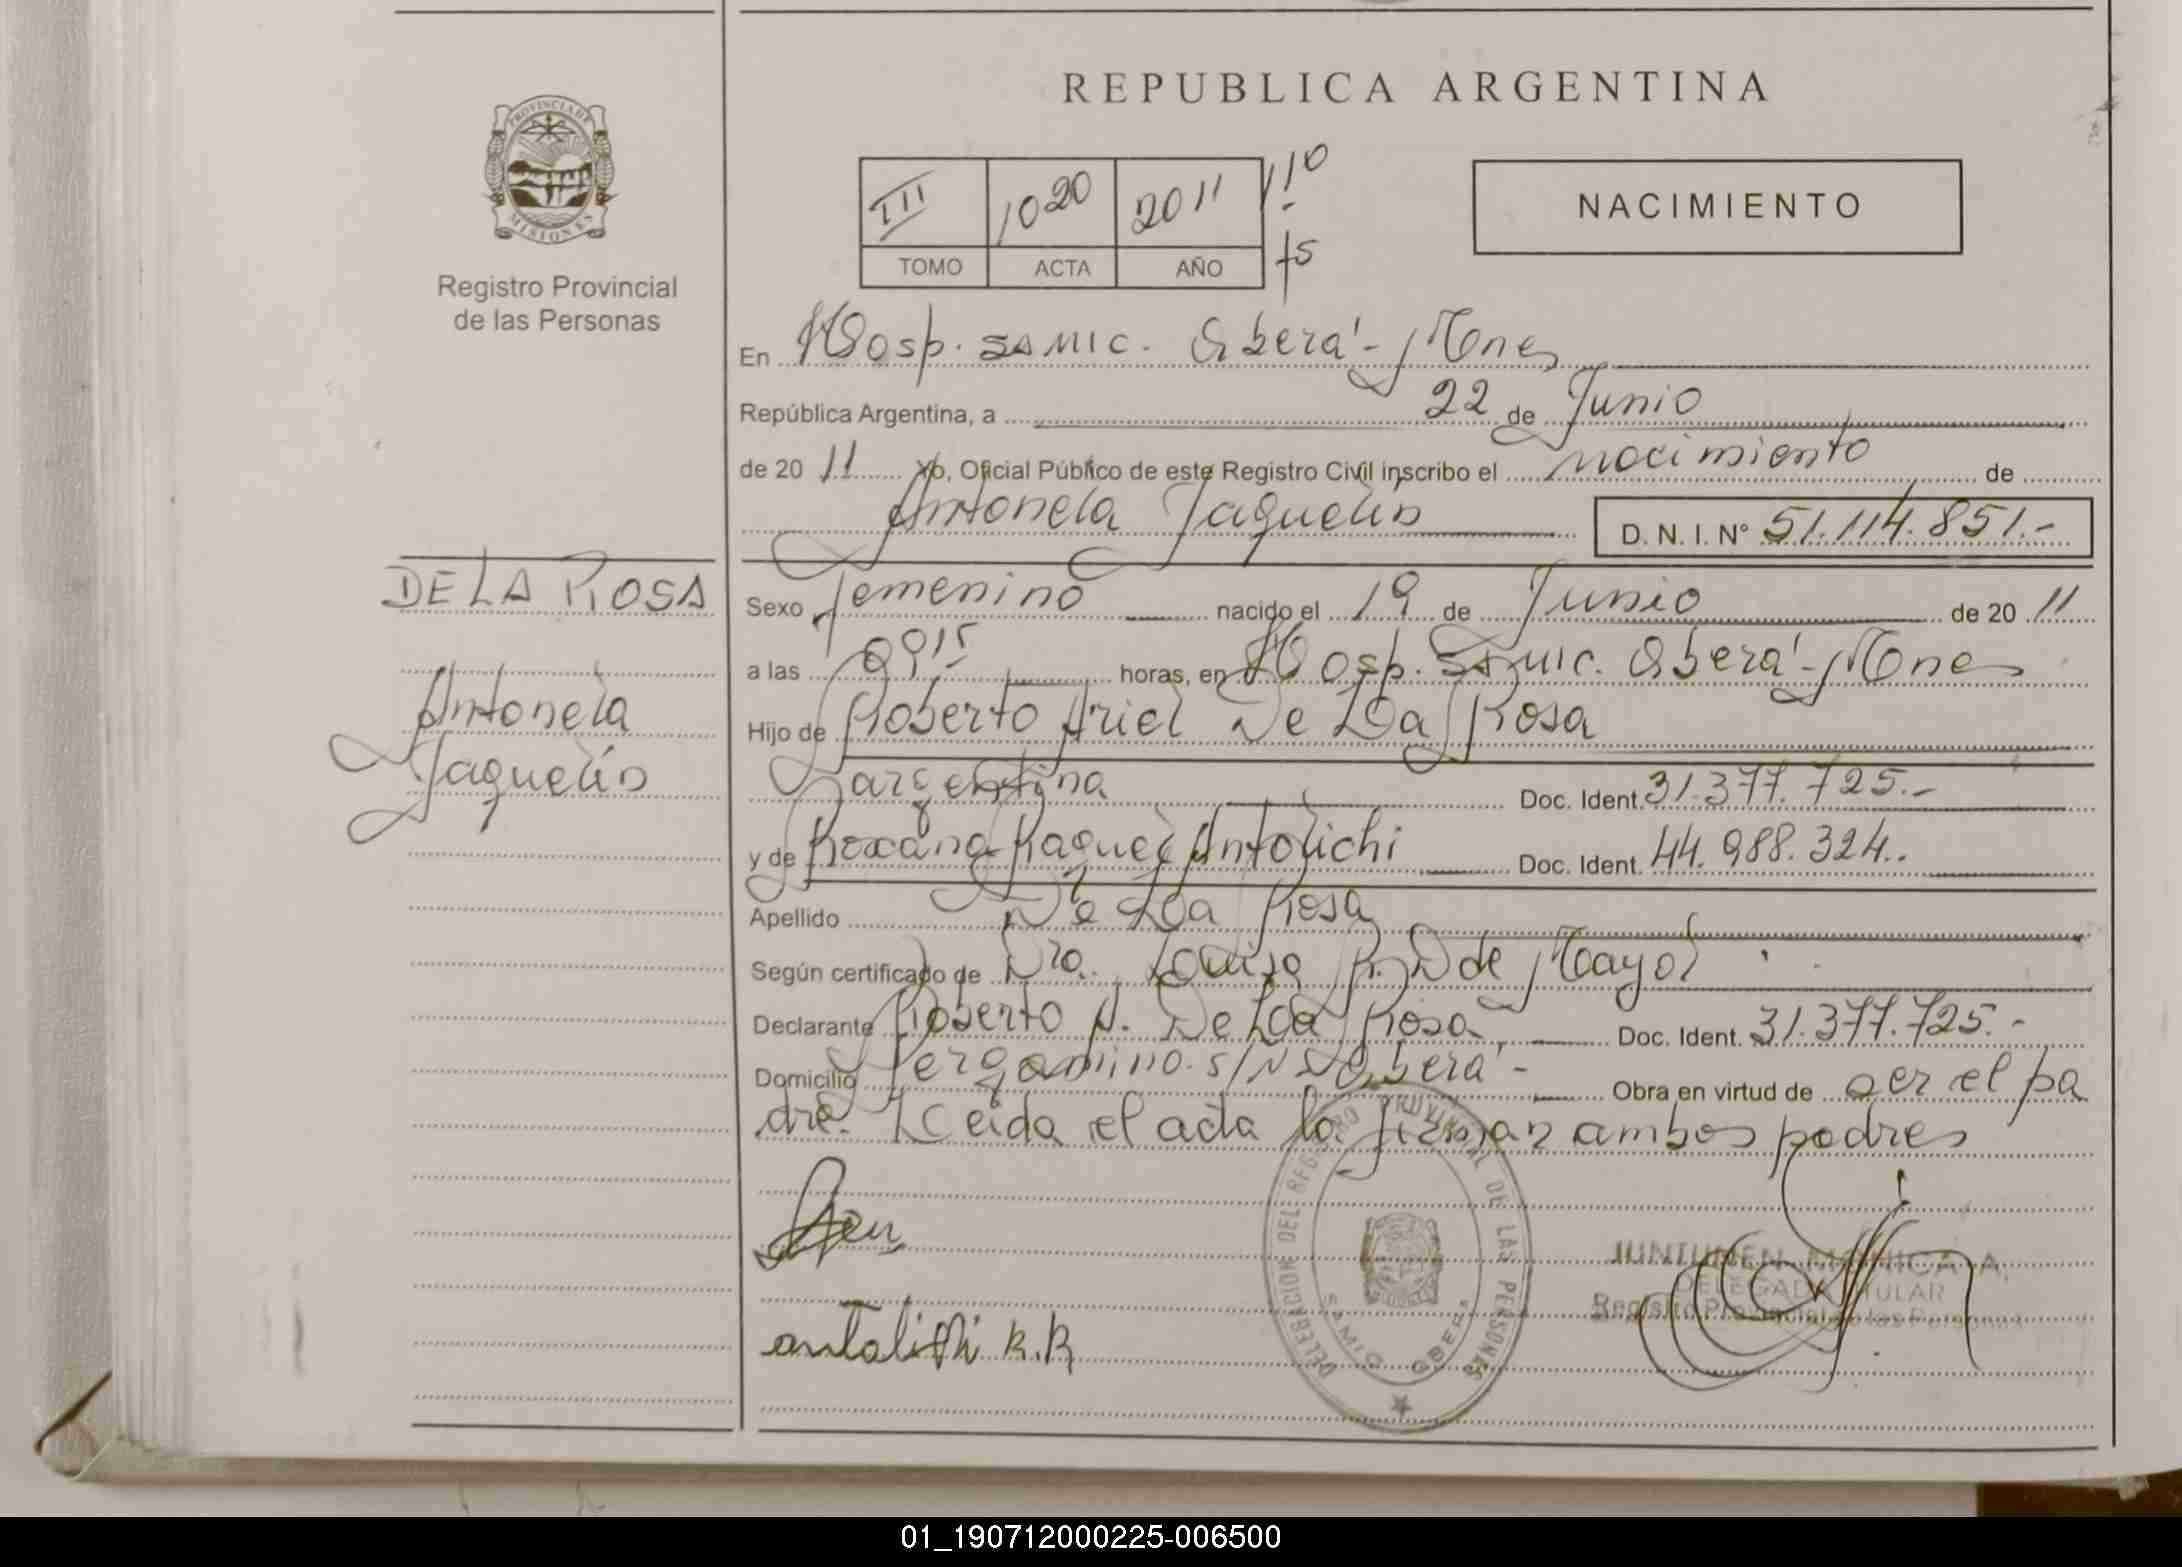 REPUBLICA ARGENTINA
PROVINCIA DE
MISIONES
Registro Provincial
de las Personas
III 1020 2011
TOMO ACTA AÑO
110
f5
NACIMIENTO
En Hosp. SAMIC. Oberá - Mnes
República Argentina, a 22 de Junio
de 20 11 Yo, Oficial Público de este Registro Civil inscribo el nacimiento de
Antonela Jaquelin D. N. I. N° 51.114.851.-
DE LA ROSA
Antonela
Jaquelin
Sexo femenino nacido el 19 de Junio de 20 11
a las 0915 horas, en Hosp. SAMIC. Oberá - Mnes
Hijo de Roberto Ariel De La Rosa
argentina Doc. Ident. 31.377.725.-
y de Roxana Raquel Antolichi Doc. Ident. 44.988.324..
Apellido De La Rosa
Según certificado de Dra. R. D de Mayol
Declarante Roberto A. De La Rosa Doc. Ident. 31.377.725.-
Domicilio Pergamino. S/N Oberá - Obra en virtud de ser el pa
dre. Leida el acta la firman ambos padres
antolichi R.R
DELEGACION DEL REGISTRO PROVINCIAL DE LAS PERSONAS
SAMIC OBERA
JUNTUNEN MONICA A.
DELEGADA TITULAR
Registro Provincial de las Personas
01_190712000225-006500